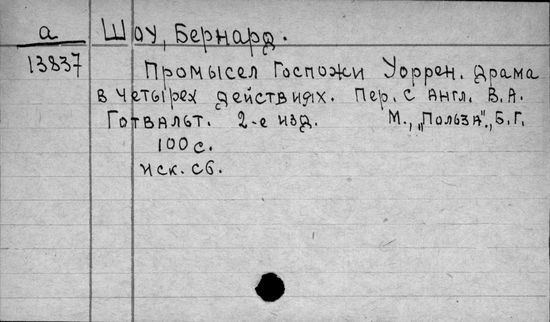 а Шоу, Бернард.
13837 Промысел Госпожи Уоррен. Драма
в четырех действиях. Пер. с англ. В.А.
Готвальт. 2-е изд. М., „Польза", Б.Г.
100 с.
иск. сб.